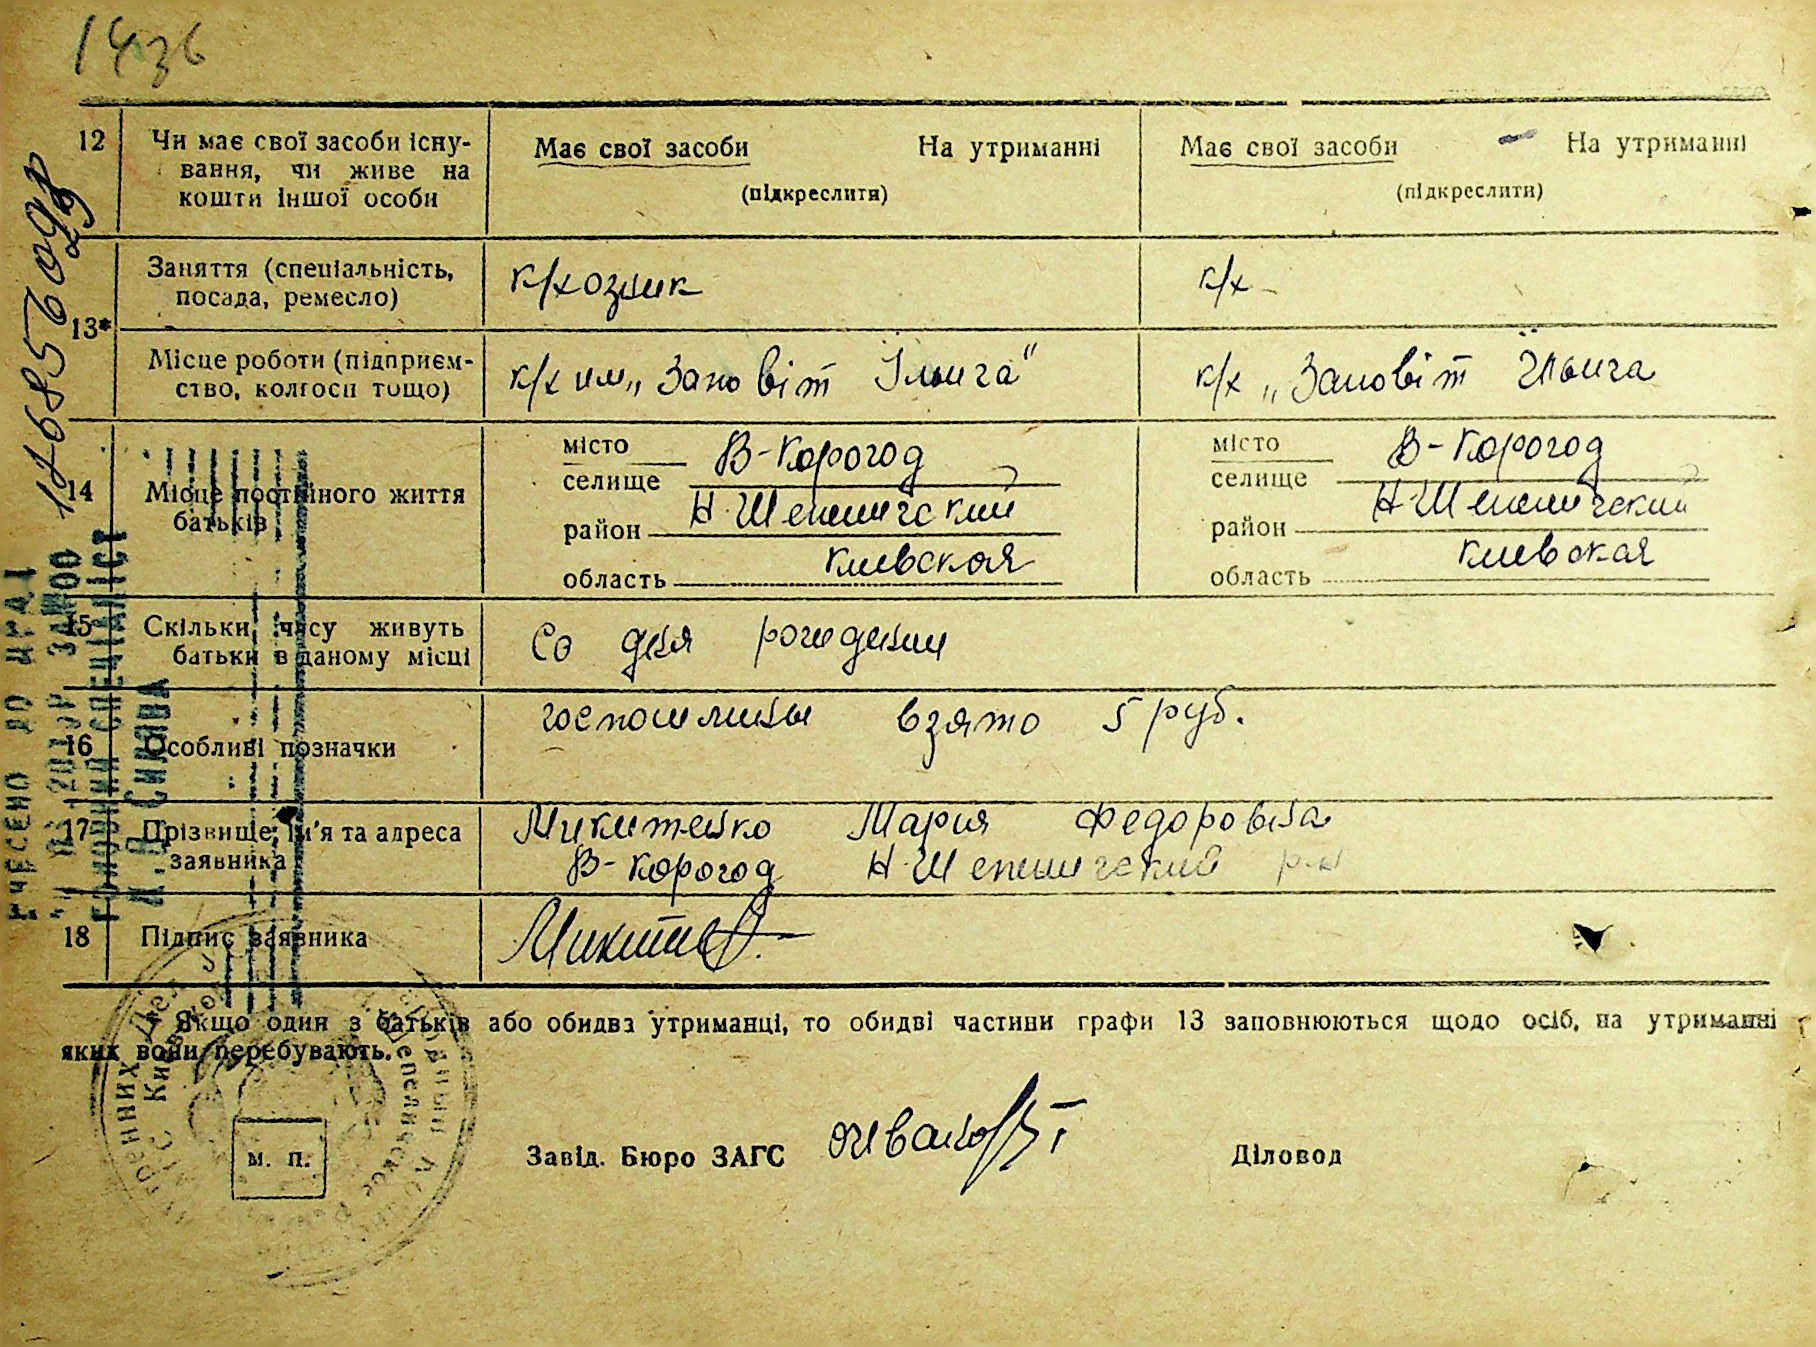 1436
12 Чи має свої засоби існу-
вання, чи живе на
кошти іншої особи
Має свої засоби На утриманні
(підкреслити)
Має свої засоби На утриманні
(підкреслити)
13*
Заняття (спеціальність,
посада, ремесло)
к/хозник
к/х
Місце роботи (підприєм-
ство, колгосп тощо)
к/х им „Заповіт Ілыча"
к/х „Заповіт Ілыча
14 Місце постійного життя
батьків
місто
селище В-Корогод
район Н-Шепеличский
область Киевская
місто
селище В-Корогод
район Н-Шепеличский
область Киевская
15 Скільки часу живуть
батьки в даному місці
Со дня рождения
16 Особливі позначки
госпошлины взято 5 руб.
17 Прізвище, ім'я та адреса
заявника
Микитенко Мария Федоровна
В-Корогод Н-Шепеличский р-н
18 Підпис заявника
* Якщо один з батьків або обидва утриманці, то обидві частини графи 13 заповнюються щодо осіб, на утриманні
яких вони перебувають.
м. п.
Завід. Бюро ЗАГС
Діловод
ВНЕСЕНО ДО ДРАЦ
ГОЛОВНИЙ СПЕЦІАЛІСТ